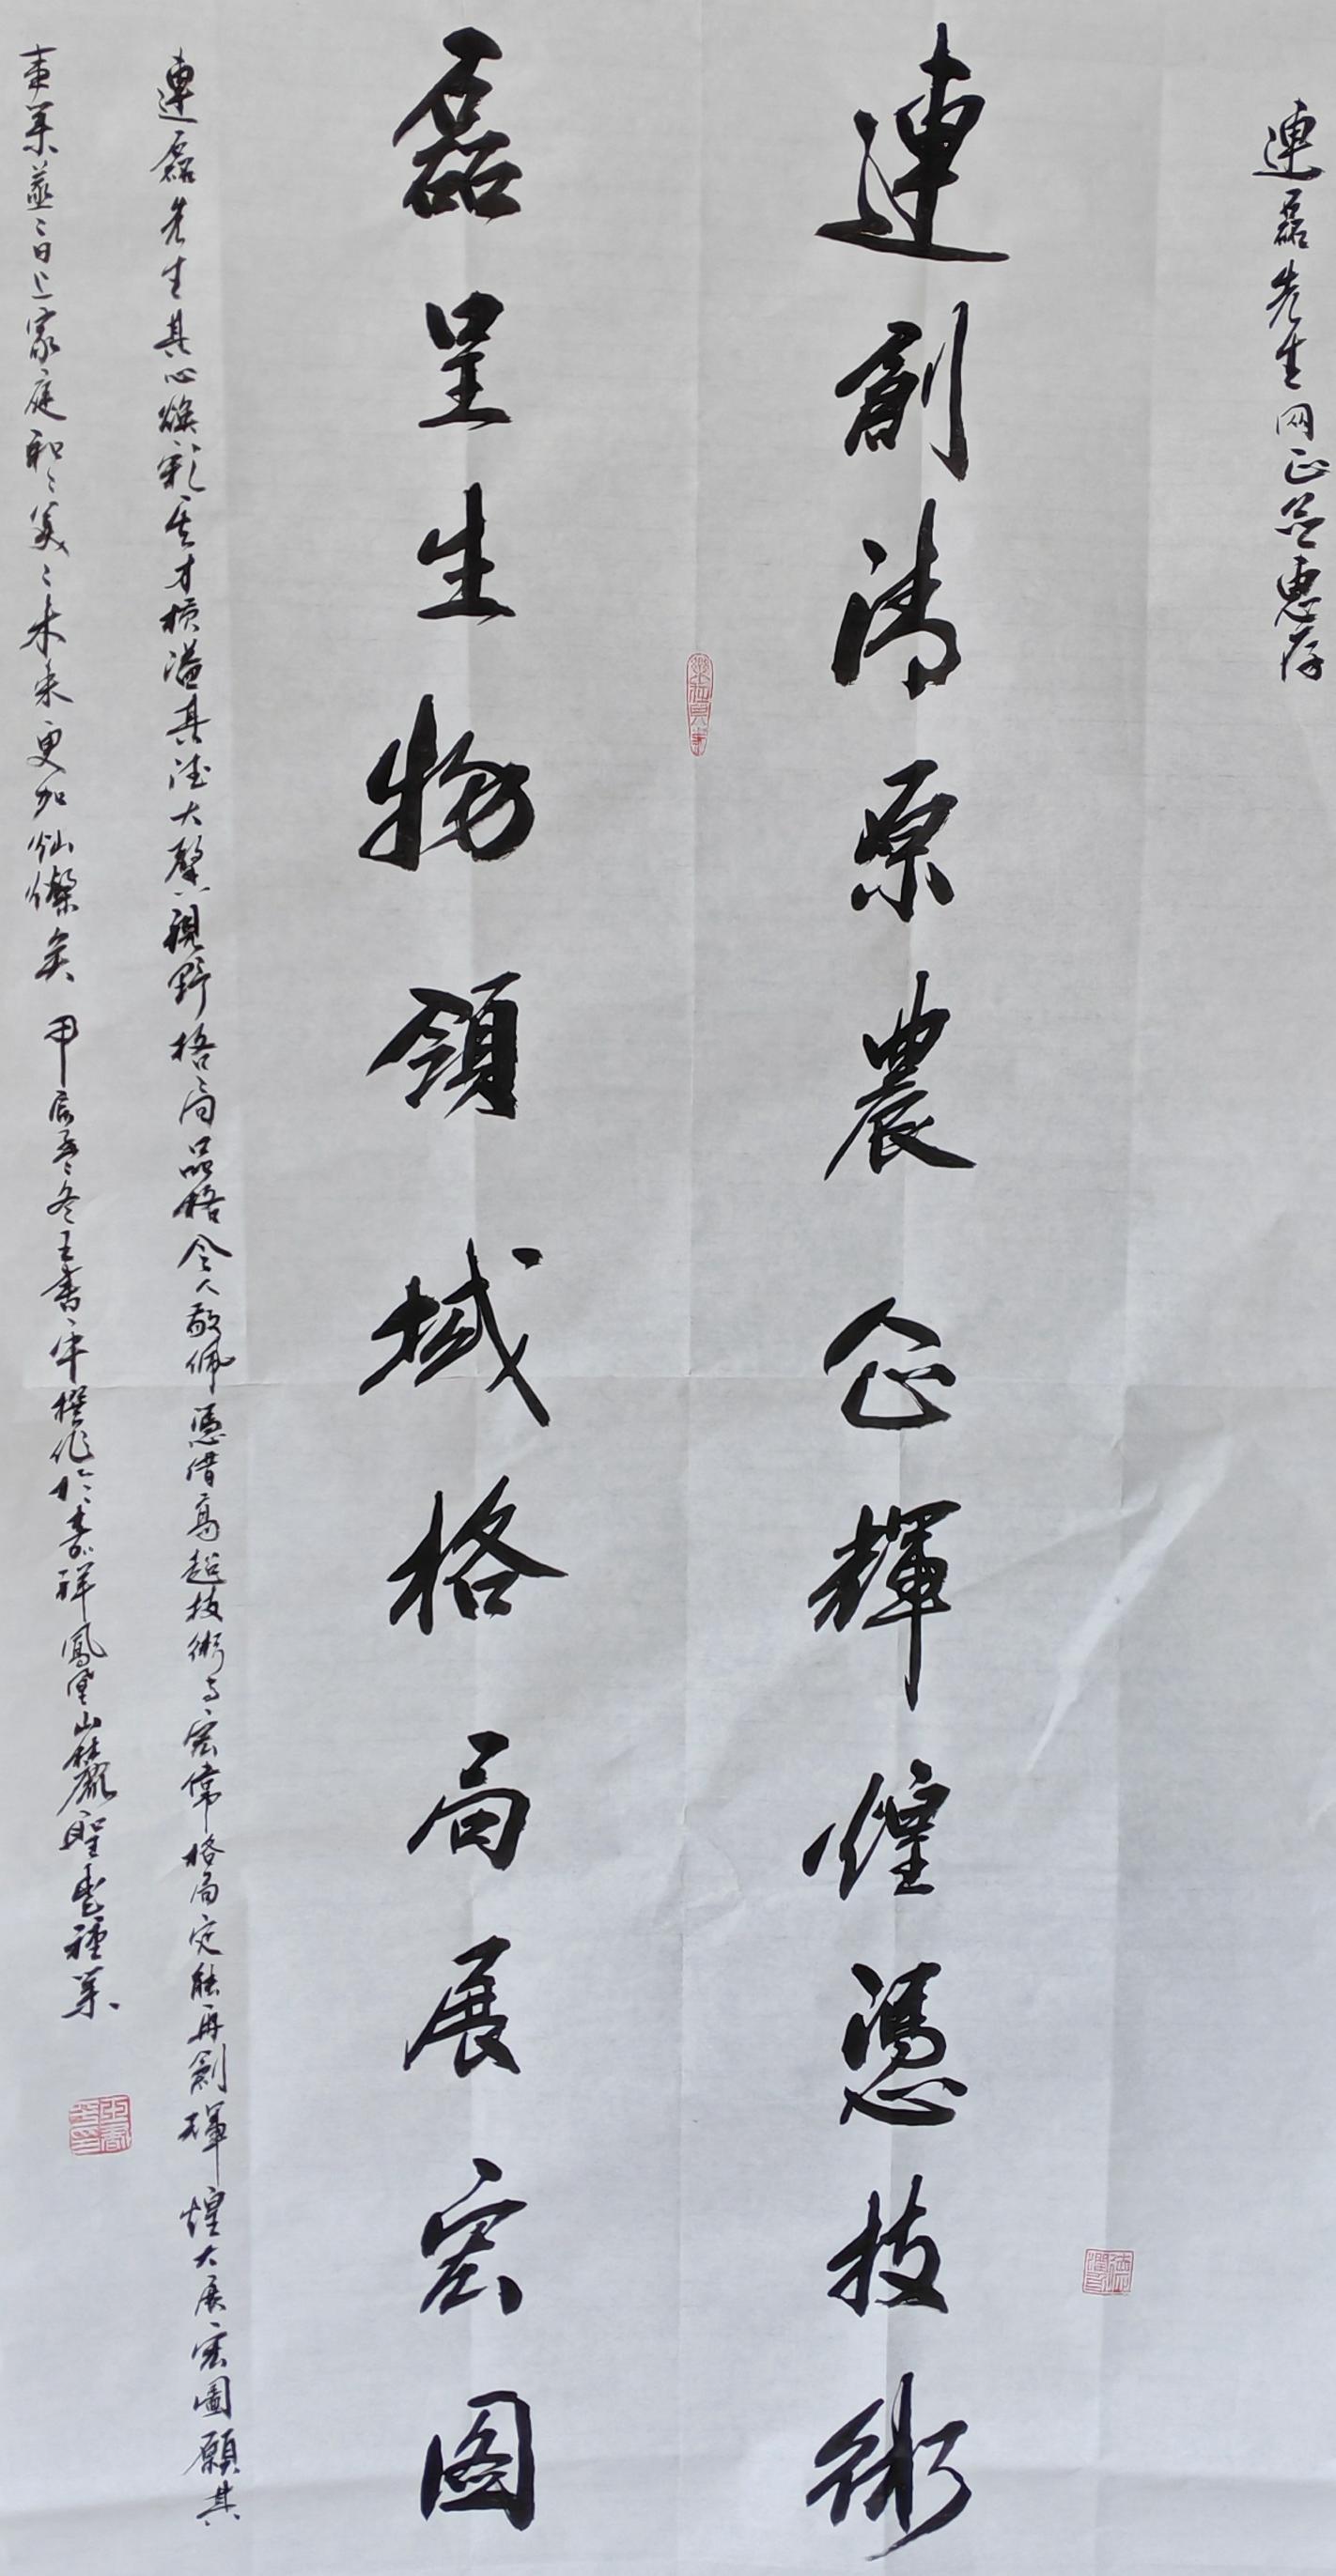 連磊先生网正并惠存
連創清原農企輝煌憑技術
磊呈生物領域格局展宏图
連磊先生其心焕彩其才横溢其德大馨視野格局品格令人敬佩憑借高超技術与宏偉格局定能再創輝煌大展宏圖願其
事業蒸蒸日上家庭和和美美未来更加灿燦矣 甲辰季冬王書平撰作於嘉祥鳳凰山麓聖